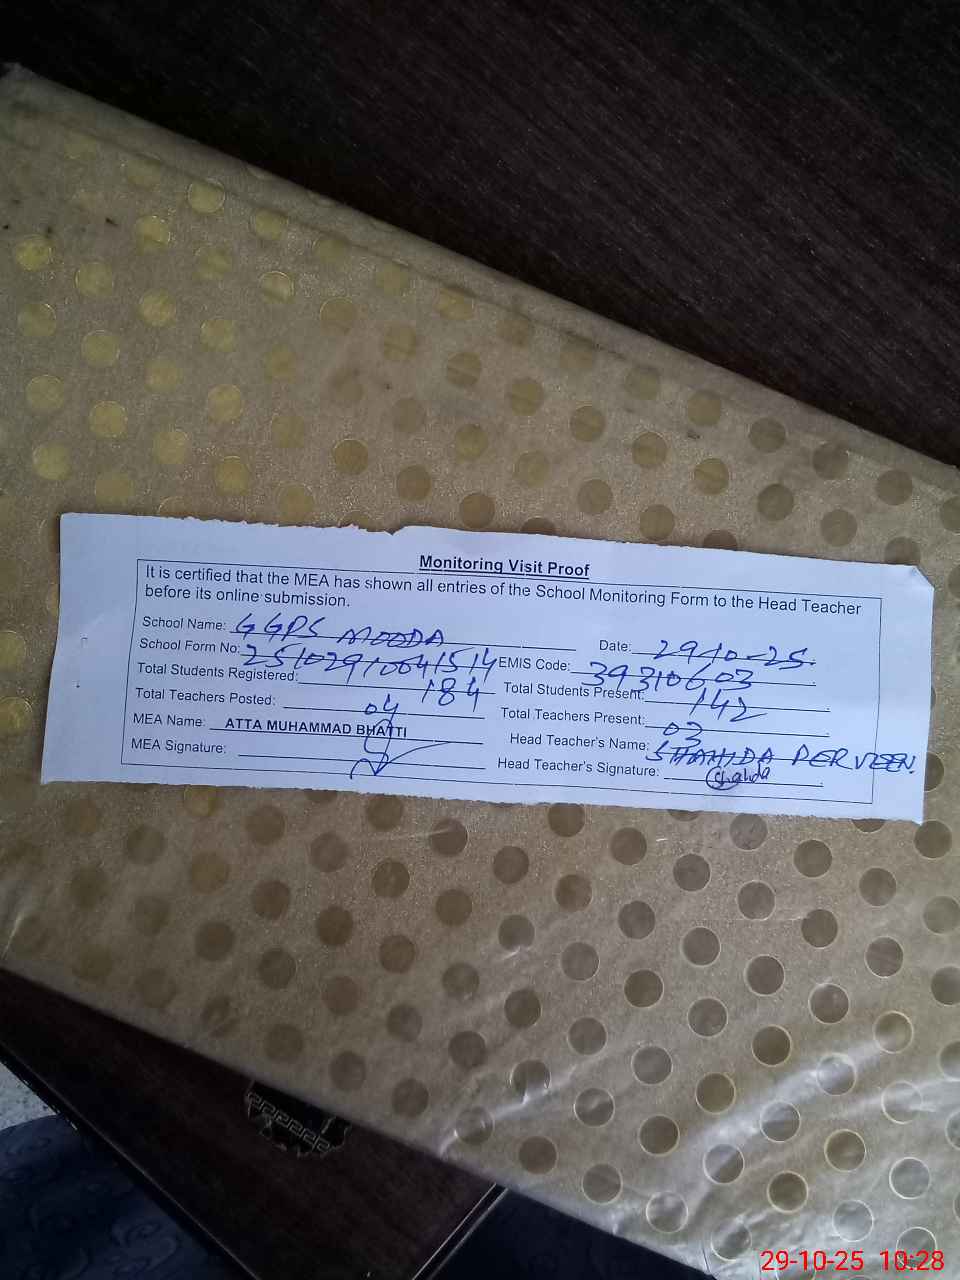 Monitoring Visit Proof
It is certified that the MEA has shown all entries of the School Monitoring Form to the Head Teacher
before its online submission.
School Name: GGPS MOODA Date: 29-10-25.
School Form No: 25102910041514 EMIS Code: 39310603
Total Students Registered: 184 Total Students Present: 142
Total Teachers Posted: 04 Total Teachers Present: 03
MEA Name: ATTA MUHAMMAD BHATTI Head Teacher's Name: SHAHIDA PERVEEN.
MEA Signature: Head Teacher's Signature: Shahida
29-10-25 10:28